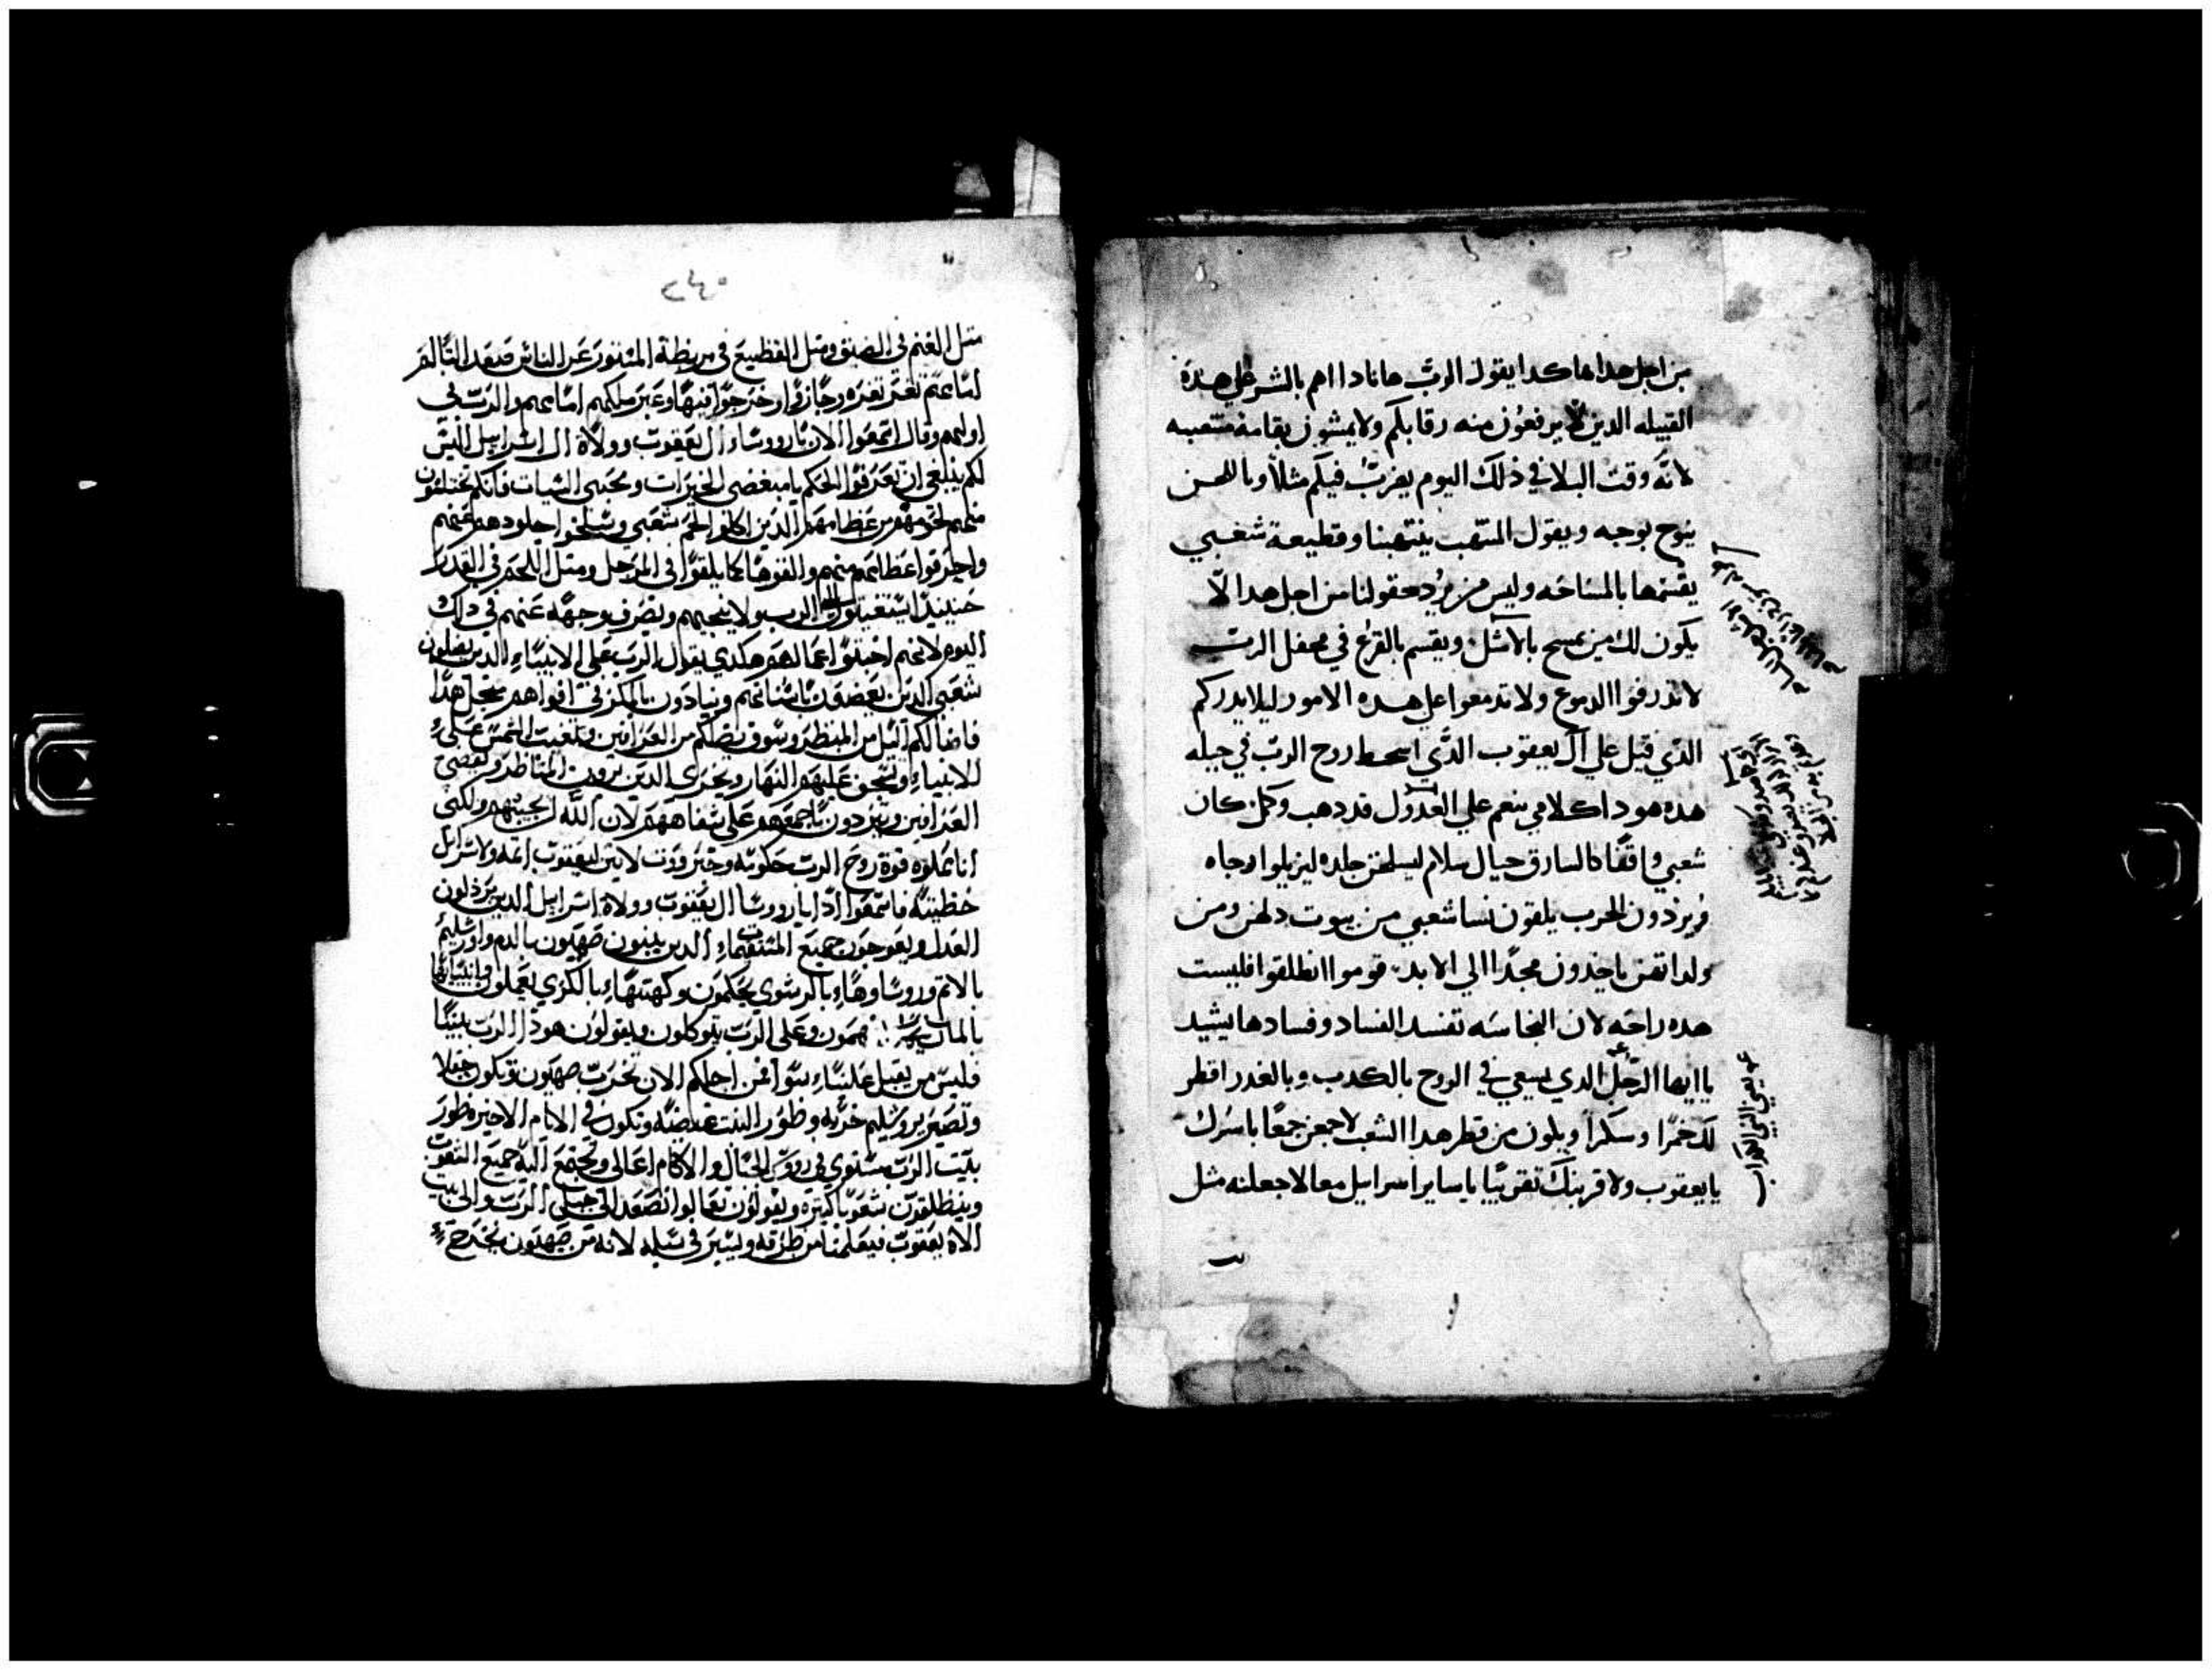 من اجل هدا هاكدا يقول الرب هانادا اهم بالشر علي هذه
القبيله الدين لا يرفعون منه رقابكم ولا يمشون بقامه منتصبه
لانه وقت البلا في ذلك اليوم يضرب فيكم مثلا وبا للحسن
ينوح بوجه ويقول المنتهب ينتهبنا وقطيعة شعبي
يقسمها بالمساحه وليس من يرد حقولنا من اجل هدا الا
يكون لك من يمسح بالاشل ويقسم بالقرع في محفل الرب
لا تدرفوا الدموع ولا تدمعوا علي هده الامور ليلا يدرككم
الدي قيل علي آل يعقوب الدي اسخط روح الرب في جيله
هده هوداك كلامي ينعم علي العدول قد دهب وكمن كان
شعبي واقفا كالسارق حيال سلام ليسلخن جلده ليزيلوا رجاه
ويرزدون للحرب يلقون نسا شعبي من بيوت دلهن ومن
ولداتهن ياخدون مجدا الي الابد قوموا انطلقوا فليست
هده راحه لان النجاسه تفسد الفساد وفسادها يشيد
يا ايها الرجل الدي يسعي في الروح بالكدب وبالغدر اقطر
لك خمرا وسكرا ويكون من قطر هدا الشعب لاجمعن جمعا باسرك
يا يعقوب ولاقربنك تقريبا يا ساير اسراييل معا لاجعلنه مثل
يعني النبي الكداب
٢٤٠
مثل الغنم في الضيق ومثل القطيع في مربطة المدعور عن الناس فيعد الثالم
امامهم ثغر ثغره وجازوا وخرجوا فيها وعبر ملكهم امامهم والرب في
اولهم وقال اسمعوا الان يا رووسا ال يعقوب وولاة ال اسراييل اليس
لكم ينبغي ان تعرفوا الحكم يا مبغضي الخيرات ومحبي السيات فانكم تختلفون
منهم لحومهم من عظامهم الدين اكلوا لحم شعبي وسلخوا جلودهم عنهم
واحرقوا عظامهم منهم والقوها كما يلقوا في المرجل ومثل اللحم في القدر
حينيد استغيتون الى الرب ولا يجيبهم ويصرف وجهه عنهم في داك
اليوم لانهم اخبثوا اعمالهم هكدي يقول الرب على الانبياء الدين يضلون
شعبي الدين يعضون باسنانهم وينادون بالكرز في افواههم من اجل هدا
فاضا لكم الليل من المنظر وسوف يضلكم من العرافين وتغيب الشمس على
للانبياء ويسجن عليهم النهار ويخزى الدين يرون المناظر وتفضى
العرافين ويزدون باجمعهم على شفاههم لان الله لن يجيبهم ولكني
انا مملوه قوة روح الرب حكومه وجبروت لابين ليعقوب اثمه ولاسرايل
خطيته فاسمعوا ادا يا رووسا ال يعقوب وولاة اسراييل الدين يردلون
العدل ويعوجون جميع المستقيمات الدين يبنون صهيون بالدم واورشليم
بالاتم ورووساوها بالرشوي يحكمون وكهنتها بالكري يعملون وانبياوها
بالمال يتكهمون وعلى الرب يتوكلون ويقولون هودا الرب بيننا
فليس من يقبل علينا سوا فمن اجلكم الان تخرب صهيون وتكون حقلا
وتصير يروشليم خربه وطور البيت غيضه وتكون في الايام الاخيره طور
بيت الرب مستوي في رووس الجبال والاكام اعالي وتجتمع اليه جميع الشعوب
وينطلقون شعوبا كثيره ويقولون تعالوا نصعد الى جبل الرب والى بيت
الاه يعقوب فيعلمنا من طرقه ونسير في سبله لانه من صهيون يخرج